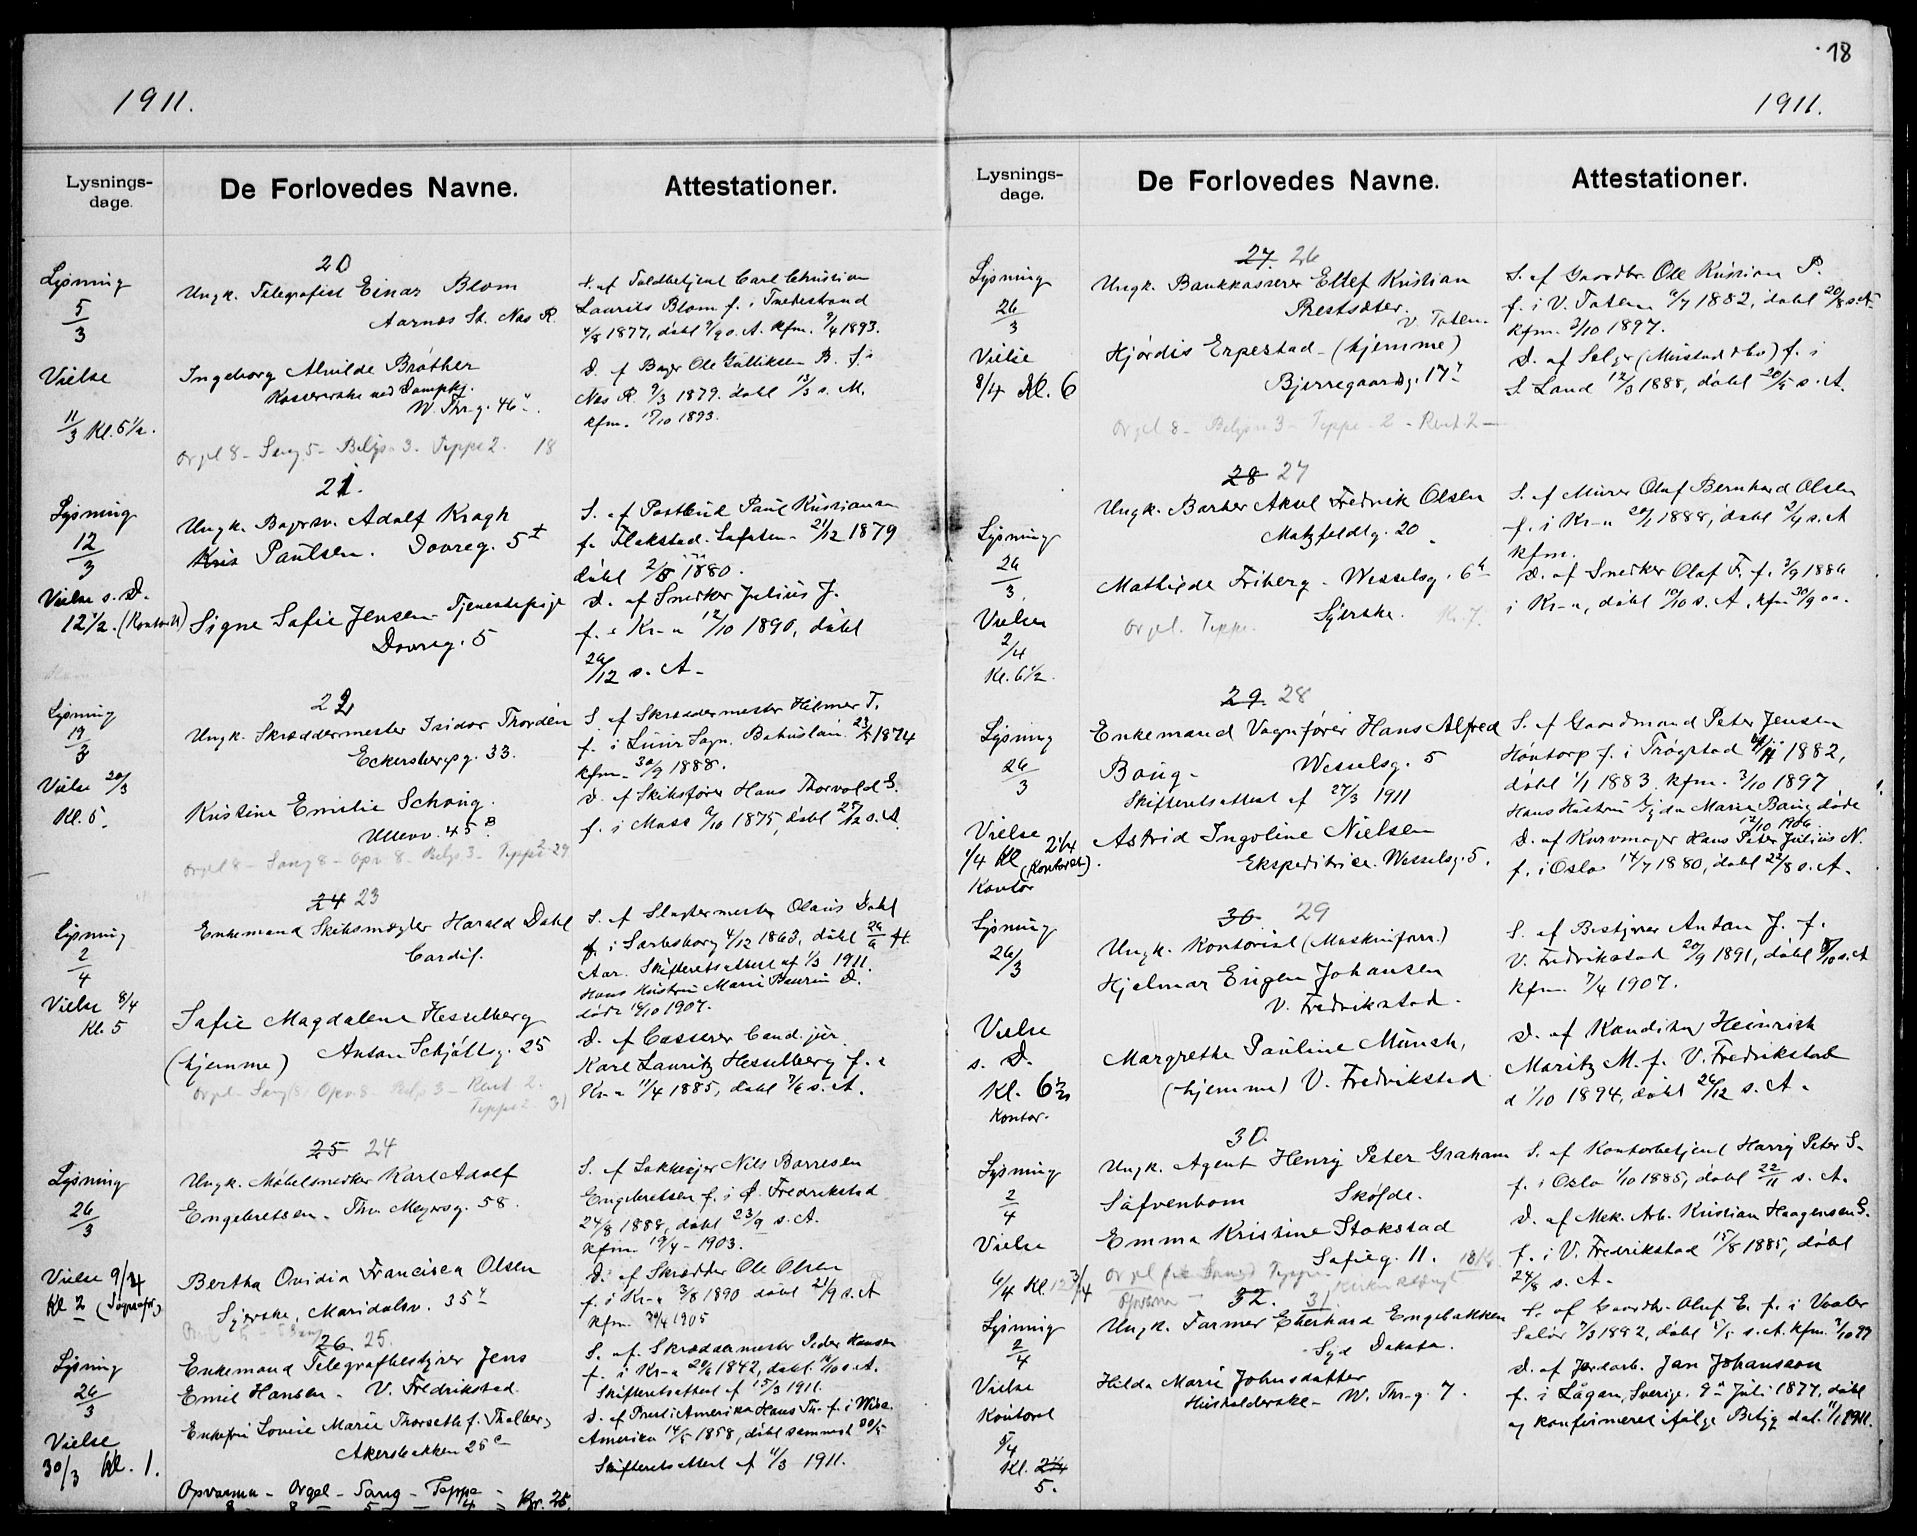 1911.
Lysnings-
dage.
De Forlovedes Navne.
Attestationer.
20
Lysning
5/3
Ungk. Telegrafist Einar Blom
Aarnæs St. Næs R.
S. af Toldbetjent Carl Christian
Laurits Blom f. i Tvedestrand
4/8 1877, døbt 9/9 s. A. kfm. 9/4 1893.
Vielse
11/3 Kl. 5 1/2.
Ingeborg Alvilde Bråthen
Kassererske ved Dampkj.
W. Thr-g. 46
D. af Bager Ole Gulliksen B. f. i
Næs R. 9/3 1879. døbt 13/3 s. A.
kfm. 15/10 1893.
Orgel 8 - Sang 5 - Belys. 3 - Teppe 2. 18
21.
Lysning
12/3
Ungk. Bagersv. Adolf Kragh
Kris Paulsen. Dovreg. 5 I
S. af Postbud Paul Kristiansen
f. Flakstad. Lofoten 21/12 1879
døbt 2/5 1880.
Vielse s. D.
12 1/2. (Kontoret)
Signe Sofie Jensen Tjenestepige
Dovreg. 5
D. af Snedker Julius J.
f. i Kr-a 12/10 1890, døbt
26/12 s. A.
22
Lysning
19/3
Ungk. Skræddermester Isidor Thordén
Eckersbergsg. 33.
S. af Skræddermester Hilmer T.
f. i Sogn. Bohuslän 23/ 1874
kfm. 30/9 1888.
Vielse 20/3
Kl. 5.
Kristine Emilie Schøng.
Ullevv. 45 B
D. af Skibsfører Hans Thorvald S.
f. i Moss 6/10 1875, døbt 27/12 s. A.
Orgel 8 - Sang 8 - Opv 8 - Belys 3 - Teppe 2 29
24 23
Lysning
2/4
Enkemand Skibsmægler Harald Dahl
Cardif.
S. af Slagtermester Olaus Dahl
f. i Sarpsborg 4/12 1863, døbt 26/6 ft.
Aar. Skifteretsattest af 1/3 1911.
Hans Hustru Marie Laurin D.
døde 16/10 1907.
Vielse 8/4
Kl. 5
Sofie Magdalene Hesselberg
(hjemme) Anton Schjøttsg. 25
D. af Casserer Cand. jur.
Karl Lauritz Hesselberg f. i
Kr-a 11/4 1885, døbt 7/6 s. A.
Orgel - Sang 8 Opv. 8 - Belys 3 - Kort 2.
Teppe 2 31
25 24
Lysning
26/3
Ungk. Møbelsnedker Karl Adolf
Engebretsen. Thv. Meyersg. 58.
S. af Nils Børresen
Engebretsen f. i Ø. Fredrikstad
24/8 1888, døbt 23/9 s. A.
kfm. 19/4 - 1903.
Vielse 9/4
Kl 2
Bertha Ovidia Francisca Olsen
Syerske, Maridalsv. 35
D. af Skrædder Ole Olsen
f. i Kr-a 3/8 1890 døbt 21/9 s. A
kfm. 30/4 1905
26. 25.
Lysning
26/3
Enkemand Telegrafbestyrer Jens
Emil Hansen - V. Fredrikstad.
S. af Skræddermester Peder Hansen
f. i Kr-a 20/6 1842, døbt. 16/10 s. A.
Skifteretsattest af 15/3 1911.
Vielse
30/3 Kl. 1.
Enkefru Lovise Marie Thorseth f. Thalberg
Akersbakken 25 c
D. af Prest i Amerika Hans Th. f. i Wisc.
Amerika 14/5 1858, døbt sammest 30/5
Skifteretsattest af 11/3 1911.
Opvarma - Orgel - Sang - Teppe -
8 - 8 - 5 - 4 = Kr. 25.
18
1911.
Lysnings-
dage.
De Forlovedes Navne.
Attestationer.
27. 26
Lysning
26/3
Ungk. Bankkasserer Ellef Kristian
Prestsæter.
V. Toten.
S. af Gaardbr. Ole Kristian P.
f. i V. Toten 6/7 1882, døbt 20/8 s. A
kfm. 3/10 1897.
Vielse
8/4 Kl. 6
Hjørdis Erpestad - (hjemme)
Bjerregaardsg. 17
D. af Selger (Mustad & Co) f. i
S. Land 12/3 1888, døbt 20/5 s. A.
Orgel 8 - Belysn 3 - Teppe - 2 - Kort 2 -
28 27
Lysning
26/3
Ungk. Barber Aksel Fredrik Olsen
Motzfeldtg. 20
S. af Murer Olaf Bernhard Olsen
f. i Kr-a 20/1 1888, døbt 2/4 s. A
kfm.
Vielse
2/4
Kl. 6 1/2.
Mathilde Friberg - Wesselsg. 6
Syerske.
D. af Snedker Olaf F. f. 3/9 1886
i Kr-a, døbt 10/10 s. A. kfm 30/9 00.
Orgel. Teppe. Kr. 7.
29. 28
Lysning
26/3
Enkemand Vognfører Hans Alfred
Boug - Wesselsg. 5
Skifteretsattest af 27/3 1911
S. af Gaardmand Peter Jensen
Høntorp f. i Trøgstad 4/11 1882,
døbt 1/1 1883. kfm. 3/10 1897
Hans Hustru Gyda Marie Boug døde
12/10 1906
Vielse
1/4 Kl. 2 1/4
(Kontoret)
Kontor
Astrid Ingoline Nielsen
Ekspeditrice. Wesselsg. 5.
D. af Kurvmager Hans Peter Julius N.
f. i Oslo 14/7 1880, døbt 22/8 s. A.
30. 29
Lysning
26/3
Ungk. Kontorist (Maskinforr.)
Hjelmar Eugen Johansen
V. Fredrikstad.
S. af Bestyrer Anton J. f.
V. Fredrikstad 20/9 1891, døbt 8/10 s. A
kfm. 7/4 1907.
Vielse
s. D.
Kl. 6 1/2
Kontor.
Margrethe Pauline Münch,
(hjemme) V. Fredrikstad
D. af Kanditor Heinrich
Moritz M. f. V. Fredrikstad
d 1/10 1894, døbt 26/12 s. A.
30.
Lysning
2/4
Ungk. Agent Henry Peter Graham
Säfvenbom Skøfde.
S. af Kontorbetjent Harry Peter S.
f. i Oslo 1/10 1885, døbt 22/11 s. A.
Vielse
6/4 Kl. 12 3/4
Emma Kristine Stokstad
Sofieg. 11.
D. af Mek. Arb. Kristian Haagensen S.
f. i V. Fredrikstad 15/8 1885, døbt
24/8 s. A.
Orgel Teppe
Opvarma
32. 31
Lysning
2/4
Ungk. Farmer Eberhard Engebakken
Syd Dakota.
S. af Gaardbr. Oluf E. f. i Vaaler
Solør 7/3 1882, døbt 1/5 s. A. kfm. 3/10 97
Vielse
Kontoret
5/4
Kl. 2 1/4
5.
Hilda Marie Johnsdatter
Husholderske - W. Thr-g. 7.
D. af Jordarb. Jan Johansson
f. i Lågan, Sverige. 9 Juli 1877, døbt
og konfirmeret ifølge Betyg dat. 11/1 1911.